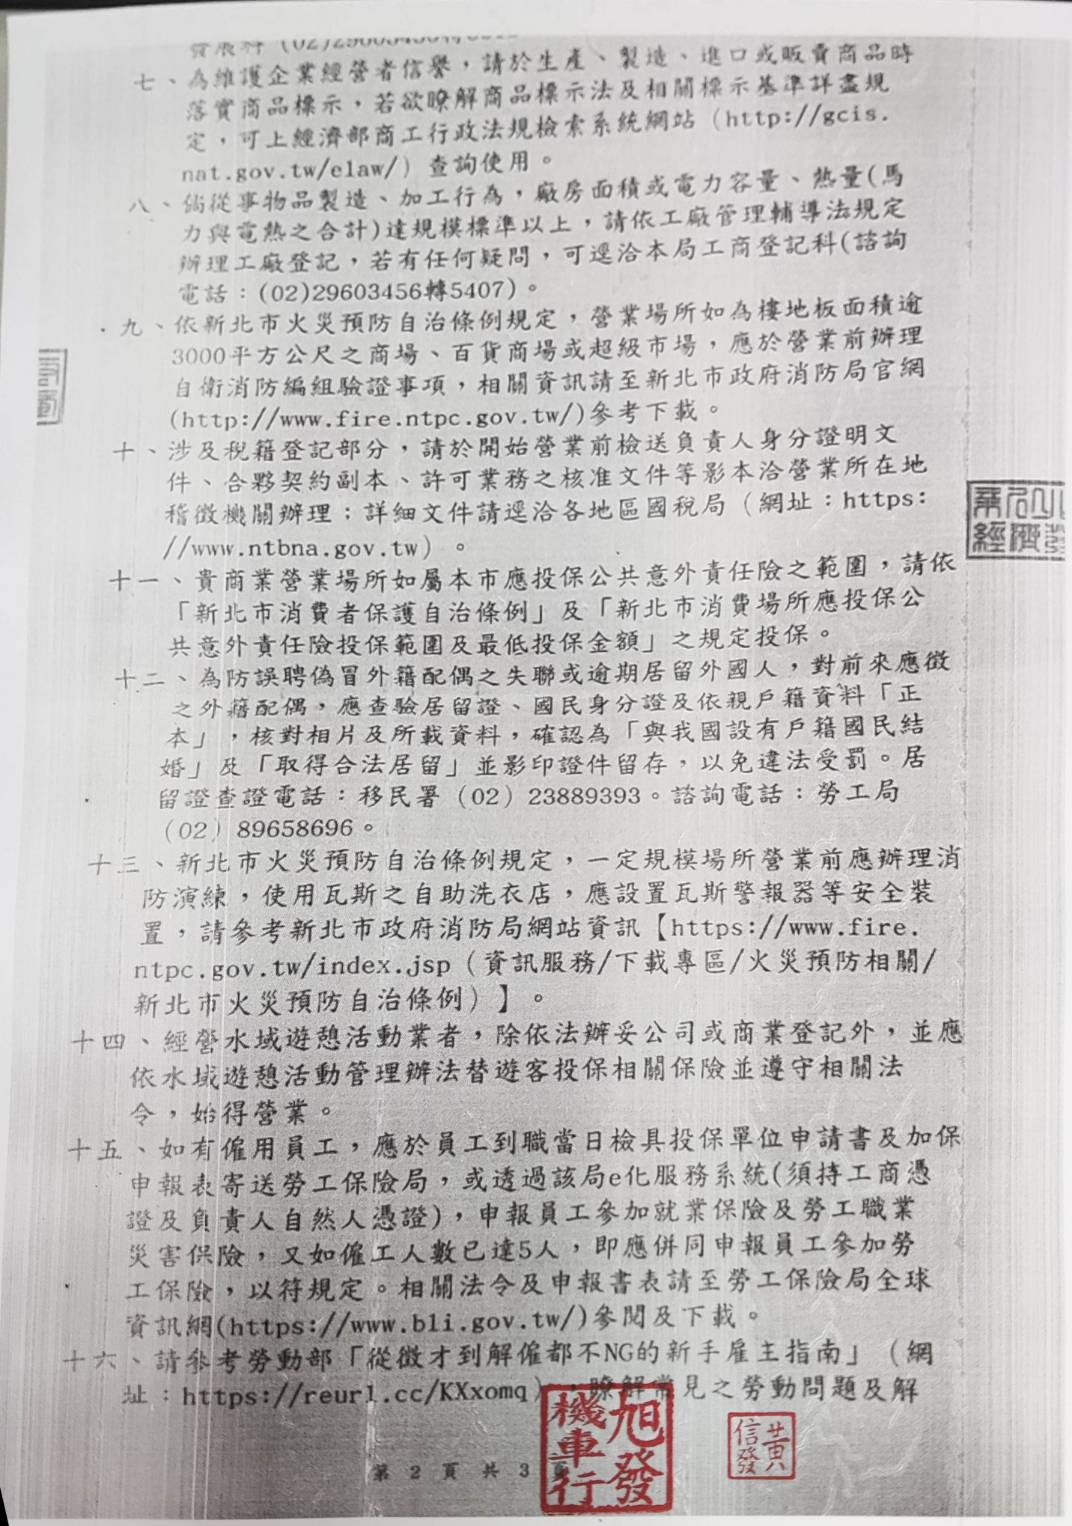 七、為維護企業經營者信譽，請於生產、製造、進口或販賣商品時
落實商品標示，若欲瞭解商品標示法及相關標示基準詳盡規
定，可上經濟部商工行政法規檢索系統網站（http://gcis.
nat.gov.tw/elaw/）查詢使用。
八、倘從事物品製造、加工行為，廠房面積或電力容量、熱量(馬
力與電熱之合計)達規模標準以上，請依工廠管理輔導法規定
辦理工廠登記，若有任何疑問，可逕洽本局工商登記科(諮詢
電話：(02)29603456轉5407)。
九、依新北市火災預防自治條例規定，營業場所如為樓地板面積逾
3000平方公尺之商場、百貨商場或超級市場，應於營業前辦理
自衛消防編組驗證事項，相關資訊請至新北市政府消防局官網
(http://www.fire.ntpc.gov.tw/)參考下載。
十、涉及稅籍登記部分，請於開始營業前檢送負責人身分證明文
件、合夥契約副本、許可業務之核准文件等影本洽營業所在地
稽徵機關辦理；詳細文件請逕洽各地區國稅局（網址：https:
//www.ntbna.gov.tw）。
十一、貴商業營業場所如屬本市應投保公共意外責任險之範圍，請依
「新北市消費者保護自治條例」及「新北市消費場所應投保公
共意外責任險投保範圍及最低投保金額」之規定投保。
十二、為防誤聘偽冒外籍配偶之失聯或逾期居留外國人，對前來應徵
之外籍配偶，應查驗居留證、國民身分證及依親戶籍資料「正
本」，核對相片及所載資料，確認為「與我國設有戶籍國民結
婚」及「取得合法居留」並影印證件留存，以免違法受罰。居
留證查證電話：移民署（02）23889393。諮詢電話：勞工局
（02）89658696。
十三、新北市火災預防自治條例規定，一定規模場所營業前應辦理消
防演練，使用瓦斯之自助洗衣店，應設置瓦斯警報器等安全裝
置，請參考新北市政府消防局網站資訊【https://www.fire.
ntpc.gov.tw/index.jsp（資訊服務/下載專區/火災預防相關/
新北市火災預防自治條例）】。
十四、經營水域遊憩活動業者，除依法辦妥公司或商業登記外，並應
依水域遊憩活動管理辦法替遊客投保相關保險並遵守相關法
令，始得營業。
十五、如有僱用員工，應於員工到職當日檢具投保單位申請書及加保
申報表寄送勞工保險局，或透過該局e化服務系統(須持工商憑
證及負責人自然人憑證)，申報員工參加就業保險及勞工職業
災害保險，又如僱工人數已達5人，即應併同申報員工參加勞
工保險，以符規定。相關法令及申報書表請至勞工保險局全球
資訊網(https://www.bli.gov.tw/)參閱及下載。
十六、請參考勞動部「從徵才到解僱都不NG的新手雇主指南」（網
址：https://reurl.cc/KXxomq），瞭解常見之勞動問題及解
旭發
機車行
黃
信發
第 2 頁 共 3 頁